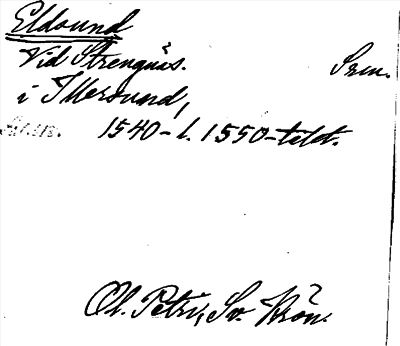 Eldsund
Vid Strengnäs. Srm.
i Illersund,
1540- l. 1550-talet.
Ol. Petri, Sv. Krön.